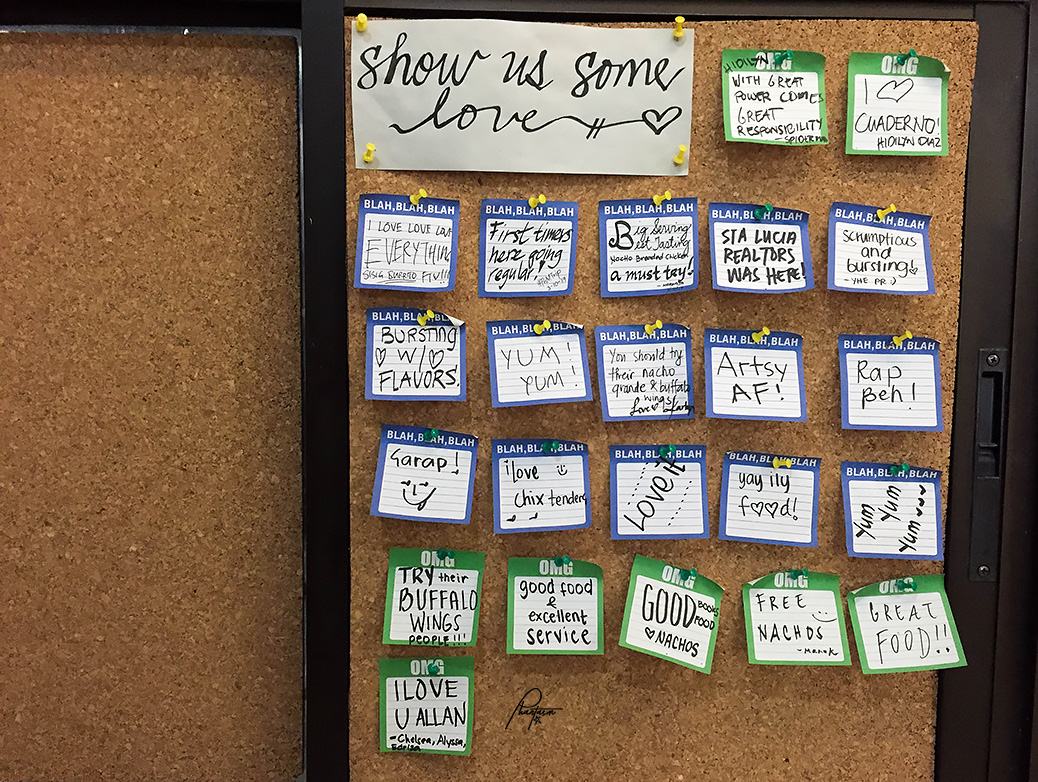 show us some
love
OMG
HIDILYN
WITH GREAT
POWER COMES
GREAT
RESPONSIBILITY
OMG
I ♡
CUADERNO!
HIDILYN DIAZ
BLAH,BLAH,BLAH
I LOVE LOVE LOVE
EVERYTHING
SISIG BURRITO FTW!!!
BLAH,BLAH,BLAH
First timers
here going
regular!
BLAH,BLAH,BLAH
Big Serving
Best Tasting
Nacho Breaded Chicken
a must try!
BLAH,BLAH,BLAH
STA LUCIA
REALTORS
WAS HERE!
BLAH,BLAH,BLAH
scrumptious
and
bursting!♡
- YHE PR :)
BLAH,BLAH,BLAH
BURSTING
♡ W/ ♡
FLAVORS.
BLAH,BLAH,BLAH
YUM!
YUM!
BLAH,BLAH,BLAH
You should try
their nacho
grande & buffalo
wings!
Love
BLAH,BLAH,BLAH
Artsy
AF!
BLAH,BLAH,BLAH
Rap
Beh!
BLAH,BLAH,BLAH
Sarap!
BLAH,BLAH,BLAH
i love
chix tenders
BLAH,BLAH,BLAH
Love it
BLAH,BLAH,BLAH
yay ily
f♡♡d!
BLAH,BLAH,BLAH
Yum
Yum
Yum
OMG
TRY their
BUFFALO
WINGS
PEOPLE!!!
OMG
good food
&
excellent
service
OMG
GOOD BOOKS
FOOD
♡ NACHOS
OMG
FREE
NACHOS
OMG
GREAT
FOOD!!
OMG
I LOVE
U ALLAN
- Chelsea, Alyssa,